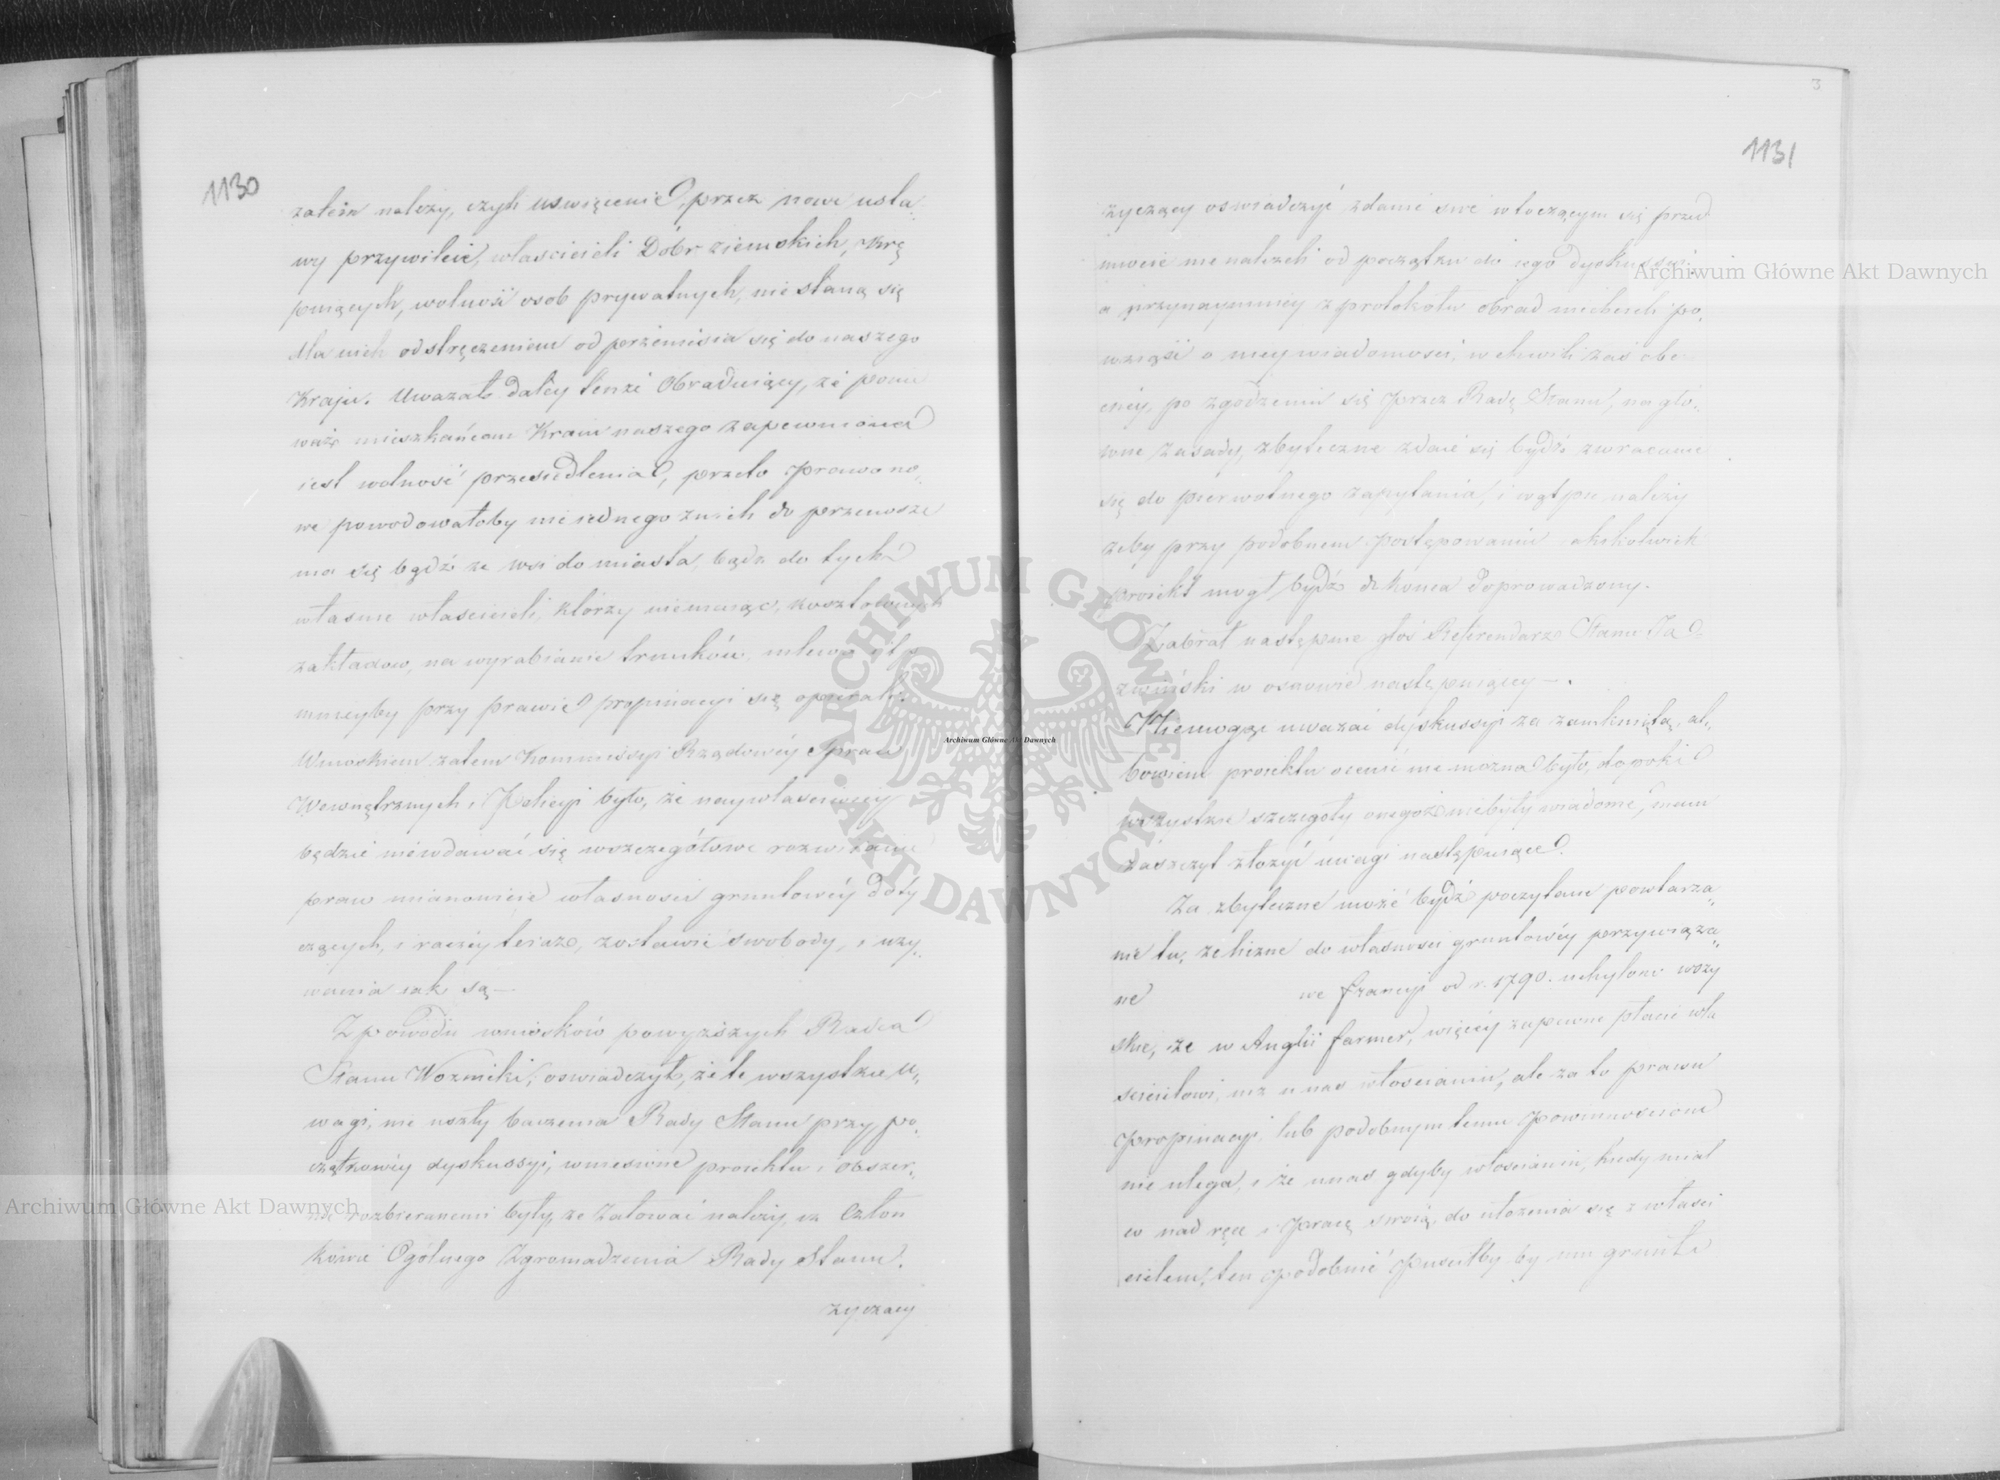 1130
zatem należy, czyli uswięcenie, przez nowe usta„
wy przywileie, własciecieli Dóbr ziemskich, krę
puiących, wolność osob prywatnych, nie staną się
dla nich odstręczeniem od przeniesia się do naszego
Kraju. Uważał daley tenże Obraduiący, że ponie
waż mieszkańcom Kraiu naszego zapewniona
iest wolność przesiedlenia, przeto prawo no„
we powodowałoby nie iednego z nich do przenosze
nia się bądź ze wsi do miasta, bądz do tych
własnie włascicieli, którzy niemaiąc, kosztownych
zakładow, na wyrabianie trunków, mlewa itp
mnieyby przy prawie propinacyi się opierali.
Wnioskiem zatem Kommissyi Rządowéy Spraw
Wewnętrznych i Policyi było, że naywłasciwiéy
będzie niewdawać się w szczegółowe rozwiianie
praw mianowicie własnosci gruntowéy doty
czących, i raczéy teraz, zostawić swobody, i uży„
wania iak są —
Z powodu wnioskow powyższych Radca
Stanu Woznicki, oswiadczył, że te wszystkie u„
wagi, nie uszły baczenia Rady Stanu przy po„
czątkowéy dyskussyi, wniesione proiektu i obszer„
nie rozbieranemi były, że żałować należy, iż Człon
kowie Ogólnego Zgromadzenia Rady Stanu.
życzący
3
1131
życzący oswiadczyć zdanie swe w toczącym się przed
miocie nie należeli od początku do iego dyskussyi
a przynaymniéy z protokołu obrad niechcieli po„
wziąść o niey wiadomości, w chwili zaś obe
cnéy, po zgodzeniu się przez Radę Stanu, na głó„
wne zasady, zbyteczne zdaie się bydź zwracanie
się do pierwotnego zapytania, i wątpić należy
żeby przy podobnem postępowaniu iakikolwiek
proiekt mogł bydź do końca doprowadzony.
Zabrał następnie głos Referendarz Stanu Ja„
zwiński w osnowie następuiącey —.
Niemogę uważać dyskussyi za zamkniętą, al„
bowiem proiektu ocenić nie można było, dopoki
wszystkie szczegoły onegoż niebyły wiadome, mam
zaszczyt złożyć uwagi następuiące.
Za zbyteczne może bydź poczytane powtarza„
nie tu, że liczne do własnosci gruntowéy przywiąza„
ne we francyi od r. 1790. uchylone wszy
skie, że w Anglii farmer, więcéy zapewne płaci wła
scicielowi, niż u nas włoscianin, ale za to prawu
propinacyi, lub podobnym temu powinnosciom
nie ulega, i że u nas gdyby włoscianin, kiedy miał
co nad ręce i pracę swoią, do ułożenia się z własci
cielem, ten podobnie puscił by mu grunta
Archiwum Główne Akt Dawnych
Archiwum Główne Akt Dawnych
Archiwum Główne Akt Dawnych
ARCHIWUM GŁÓWNE · AKT DAWNYCH ·